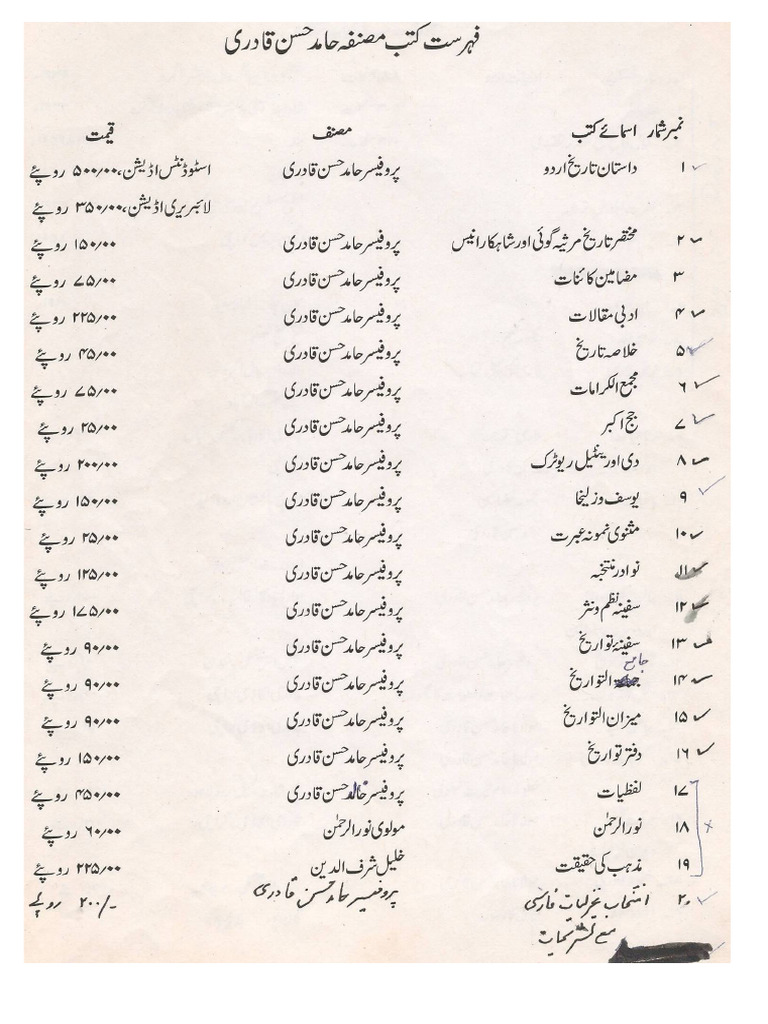 فہرست کتب مصنفہ حامد حسن قادری
نمبر شمار اسمائے کتب مصنف قیمت
۱ داستان تاریخ اردو پروفیسر حامد حسن قادری اسٹوڈنٹس اڈیشن، ۵۰۰/۰۰ روپئے
لائبریری اڈیشن، ۳۵۰/۰۰ روپئے
۲ مختصر تاریخ مرثیہ گوئی اور شاہکار انیس پروفیسر حامد حسن قادری ۱۵۰/۰۰ روپئے
۳ مضامین کائنات پروفیسر حامد حسن قادری ۷۵/۰۰ روپئے
۴ ادبی مقالات پروفیسر حامد حسن قادری ۲۲۵/۰۰ روپئے
۵ خلاصہ تاریخ پروفیسر حامد حسن قادری ۴۵/۰۰ روپئے
۶ مجمع الکرامات پروفیسر حامد حسن قادری ۷۵/۰۰ روپئے
۷ حج اکبر پروفیسر حامد حسن قادری ۲۵/۰۰ روپئے
۸ دی اورینٹیل ریوٹرک پروفیسر حامد حسن قادری ۲۰۰/۰۰ روپئے
۹ یوسف و زلیخا پروفیسر حامد حسن قادری ۱۵۰/۰۰ روپئے
۱۰ مثنوی نمونہ عبرت پروفیسر حامد حسن قادری ۲۵/۰۰ روپئے
۱۱ نوادر منتخبہ پروفیسر حامد حسن قادری ۱۲۵/۰۰ روپئے
۱۲ سفینہ نظم و نثر پروفیسر حامد حسن قادری ۱۷۵/۰۰ روپئے
۱۳ سفینۂ تواریخ پروفیسر حامد حسن قادری ۹۰/۰۰ روپئے
۱۴ جامع التواریخ پروفیسر حامد حسن قادری ۹۰/۰۰ روپئے
۱۵ میزان التواریخ پروفیسر حامد حسن قادری ۹۰/۰۰ روپئے
۱۶ دفتر تواریخ پروفیسر حامد حسن قادری ۱۵۰/۰۰ روپئے
۱۷ لفظیات پروفیسر خالد حسن قادری ۴۵۰/۰۰ روپئے
۱۸ نور الرحمٰن مولوی نور الرحمٰن ۶۰/۰۰ روپئے
۱۹ مذہب کی حقیقت خلیل شرف الدین ۲۲۵/۰۰ روپئے
۲۰ انتخاب غزلیات فارسی پروفیسر حامد حسن قادری ۲۰۰/- روپئے
مع تشریحات